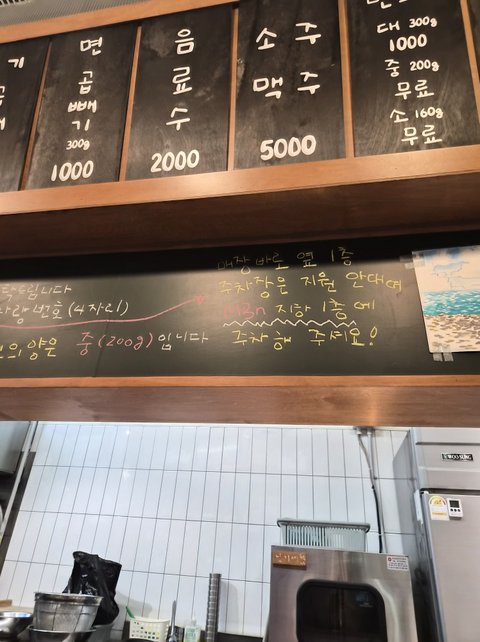 기
면
곱
빼
기
300g
1000
음
료
수
2000
소 주
맥 주
5000
대 300g
1000
중 200g
무료
소 160g
무료
매장 바로 옆 1층
주차장은 지원 안돼여
지하 1층에
주차해 주세요!
탁드립니다
차량번호 (4자리)
의 양은 중(200g)입니다
WOOSUNG